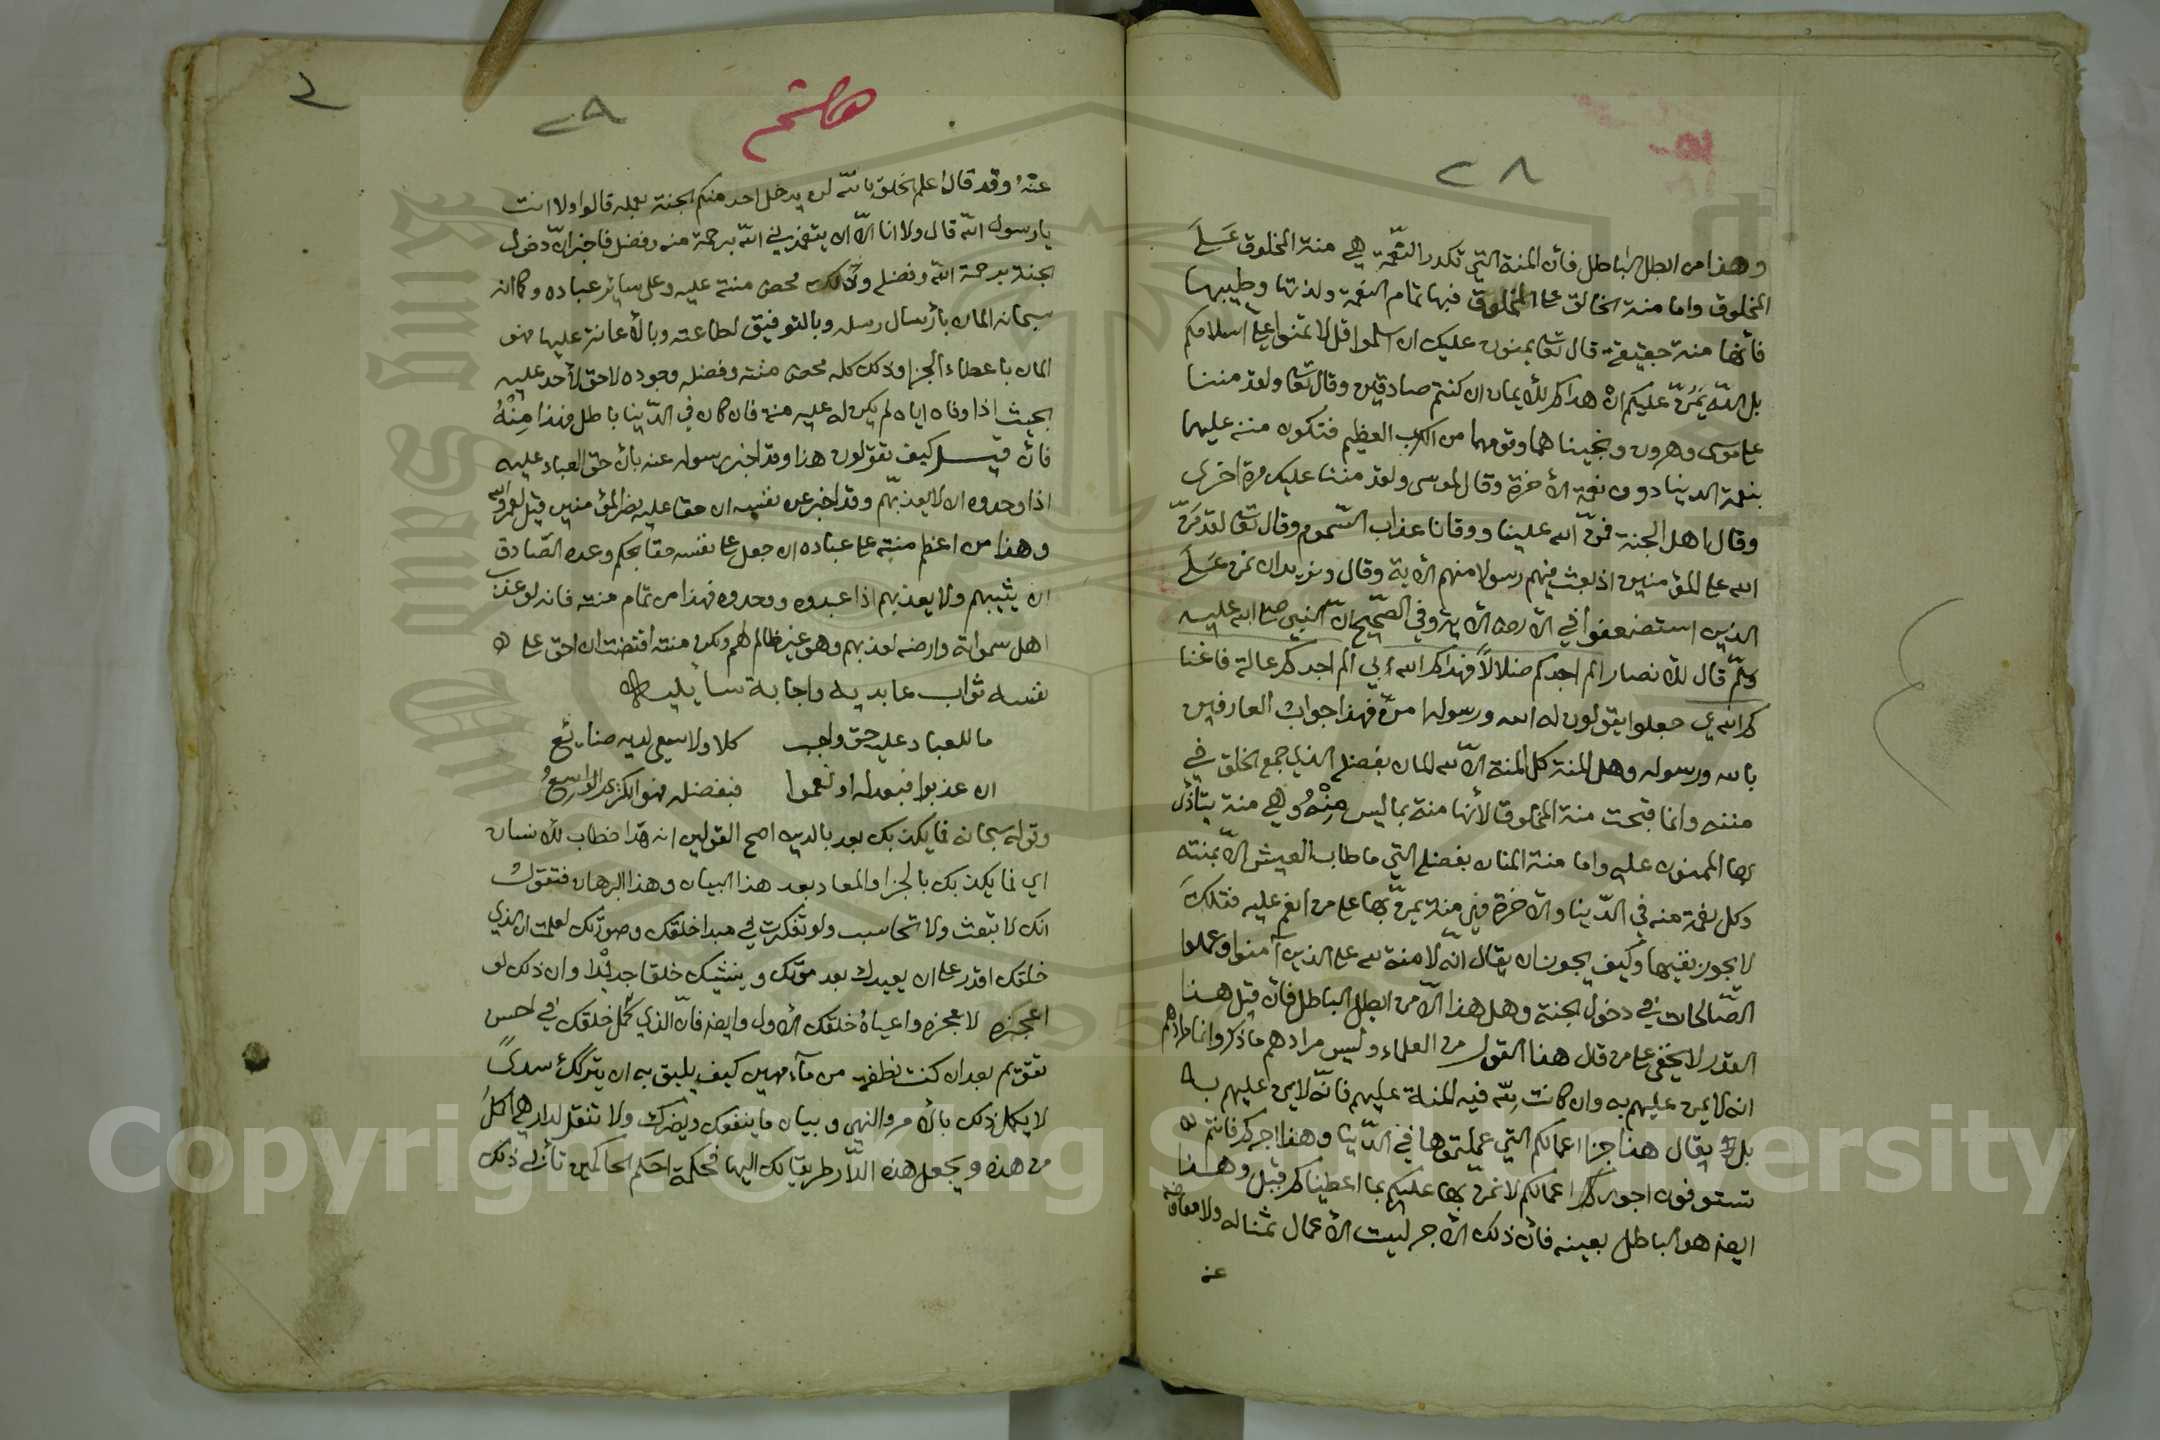 ٢٨
وهذا من ابطل الباطل فأن المنة التي تكدر النعمة هي منة المخلوق على
المخلوق واما منة الخالق على المخلوق فبها تمام النعمة ولذتها وطيبها
فأنها منة حقيقة قال تعا يمنون عليك ان اسلموا قل لا تمنوا علي اسلامكم
بل الله يَمُنّ عليكم انْ هداكم للأيمان ان كنتم صادقين وقال تعا ولقد مننا
على موسى وهرون ونجيناهما وقومهما من الكرب العظيم فتكون منته عليهما
بنعمة الدينا دون نعمة الأخرة وقال لموسى ولقد مننا عليك مرة اخرى
وقال اهل الجنة فمنّ الله علينا ووقانا عذاب السّموم وقال تعا لقد مَنّ
الله على المؤمنين اذ بعث فيهم رسولا منهم الأية وقال ونريد ان نمن عَلَى
الذين استضعفوا في الأرض الأية وفي الصّحيح انّ النبي صلى الله عليه
وسلّم قال للأنصار الم اجدكم ضلالاً فهداكم الله بي الم اجدكم عالة فاغنا
كم الله بي جعلوا يقولون له الله ورسوله امنّ فهذا جواب العارفين
بالله ورسوله وهل المنة كل المنة الاّ لله المان بفضله الذي جمع الخلق في
مننه وانما قبحت منة المخلوق لأنها منة بما ليس مِنْهُ وهي منة يتأذى
بها الممنون عليه واما منة المنان بفضله التي ما طاب العيش الاّ بمنته
وكل نعمة منه في الدّينا والأخرة فهي منة يمنّ بها على من انعم عليه فتلكَ
لا يجوز نفيها وكيف يجوز ان يقال انّه لا منة لله على الذين آمنوا وعملوا
الصّالحات في دخول الجنة وهل هذا الاّ من ابطل الباطل فأن قيل هذا
القدر لا يخفى على من قال هذا القول من العلماء وليس مرادهم ما ذكر وانما مرادهم
انه لا يمن عليهم به وان كانت لله فيه المنة عليهم فانّه لا يمن عليهم به
بل يقال هذا جزا اعمالكم التي عملتموها في الدّينا وهذا اجركم فانتم
تستوفون اجور اعمالكم لا نمن بها عليكم بما اعطيناكم قيل وهذا
ايضا هو الباطل بعينه فأن ذلك الأجر ليست الأعمال ثمنا له ولا معاوضة
عنه
هاشم
٢٩
عنْهُ وقد قال اعلم الخلق بالله لن يدخل احد منكم الجنة بعمله قالوا ولا انت
يارسول الله قال ولا انا الاّ ان يتغمدني الله برحمة منه وفضل فاخبر انّ دخول
الجنة برحمة الله وفضله وذلك محض منته عليه وعلى سائر عباده وكما انه
سبحانه المان بأرسال رسله وبالتوفيق لطاعته وبالأعانة عليها فهو
المان باعطاء الجزا وذلك كله محض منته وفضله وجوده لا حق لأحد عليه
بحيث اذا وفاه اياه لم يكن له عليه منة فان كان في الدّينا باطل فهذا مِنْهُ
فأن قيل كيف تقولون هذا وقد اخبر رسوله عنه بأن حق العباد عليه
اذا وحدوه ان لا يعذبهم وقد اخبر عن نفسه ان حقا عليه نصر المؤمنين قيل لعمر الله
وهذا من اعظم منته على عباده ان جعل على نفسه حقا بحكم وعده الصّادق
ان يثيبهم ولا يعذبهم اذا عبدوه ووحدوه فهذا من تمام منته فانه لو عذب
اهل سمواته وارضه لعذبهم وهو غير ظالم لهم ولكن منته اقتضت ان احق على
نفسه ثواب عابديه واجابة سايليه
ما للعباد عليه حق واجب كلا ولا سعي لديه ضائع
ان عذبوا فبعدله او نعموا فبفضله فهو الكريم الواسعُ
وقوله سبحانه فما يكذبك بعد بالدين اصح القولين انه هذا خطاب للأنسان
اي فما يكذبك بالجزا والمعاد بعد هذا البيان وهذا البرهان فتقول
انك لا تبعث ولا تحاسب ولو تفكرت في مبدا خلقك وصورتك لعلمت ان الذي
خلقك اقدر على ان يعيدك بعد موتك وينشيك خلقا جديدًا وان ذلك لو
اعجزه لاعجزه واعياهُ خلقك الأول وايضا فانّ الذي كمل خلقك في احسن
تقويم بعد ان كنت نطفة من مآء مهين كيف يليق به ان يتركك سدىً
لا يكمل ذلك بالأمر والنهي وبيان ما ينفعك ويضرك ولا تنقل لدار هي اكملُ
من هذه ويجعل هذه الدّار طريقا لك اليها فحكمة احكم الحاكمين تأبى ذلك